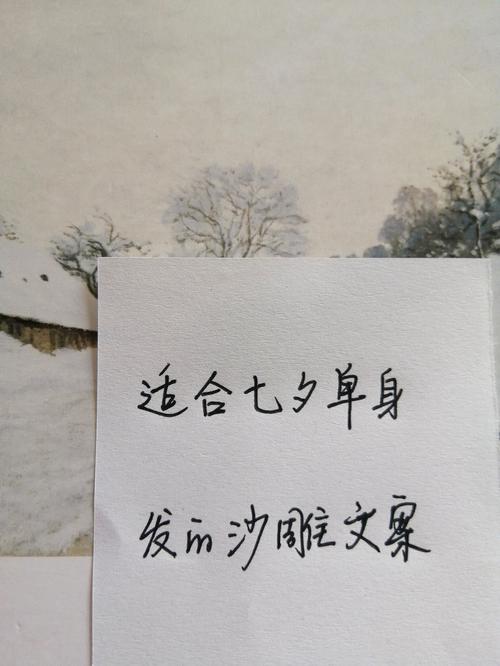 适合七夕单身
发的沙雕文案